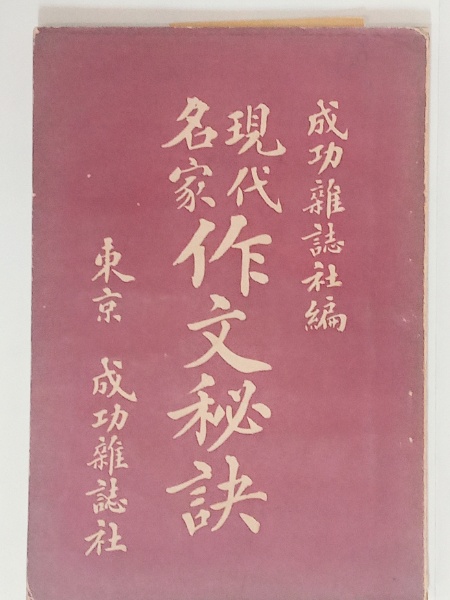 成功雜誌社編
現代
名家
作文秘訣
東京 成功雜誌社